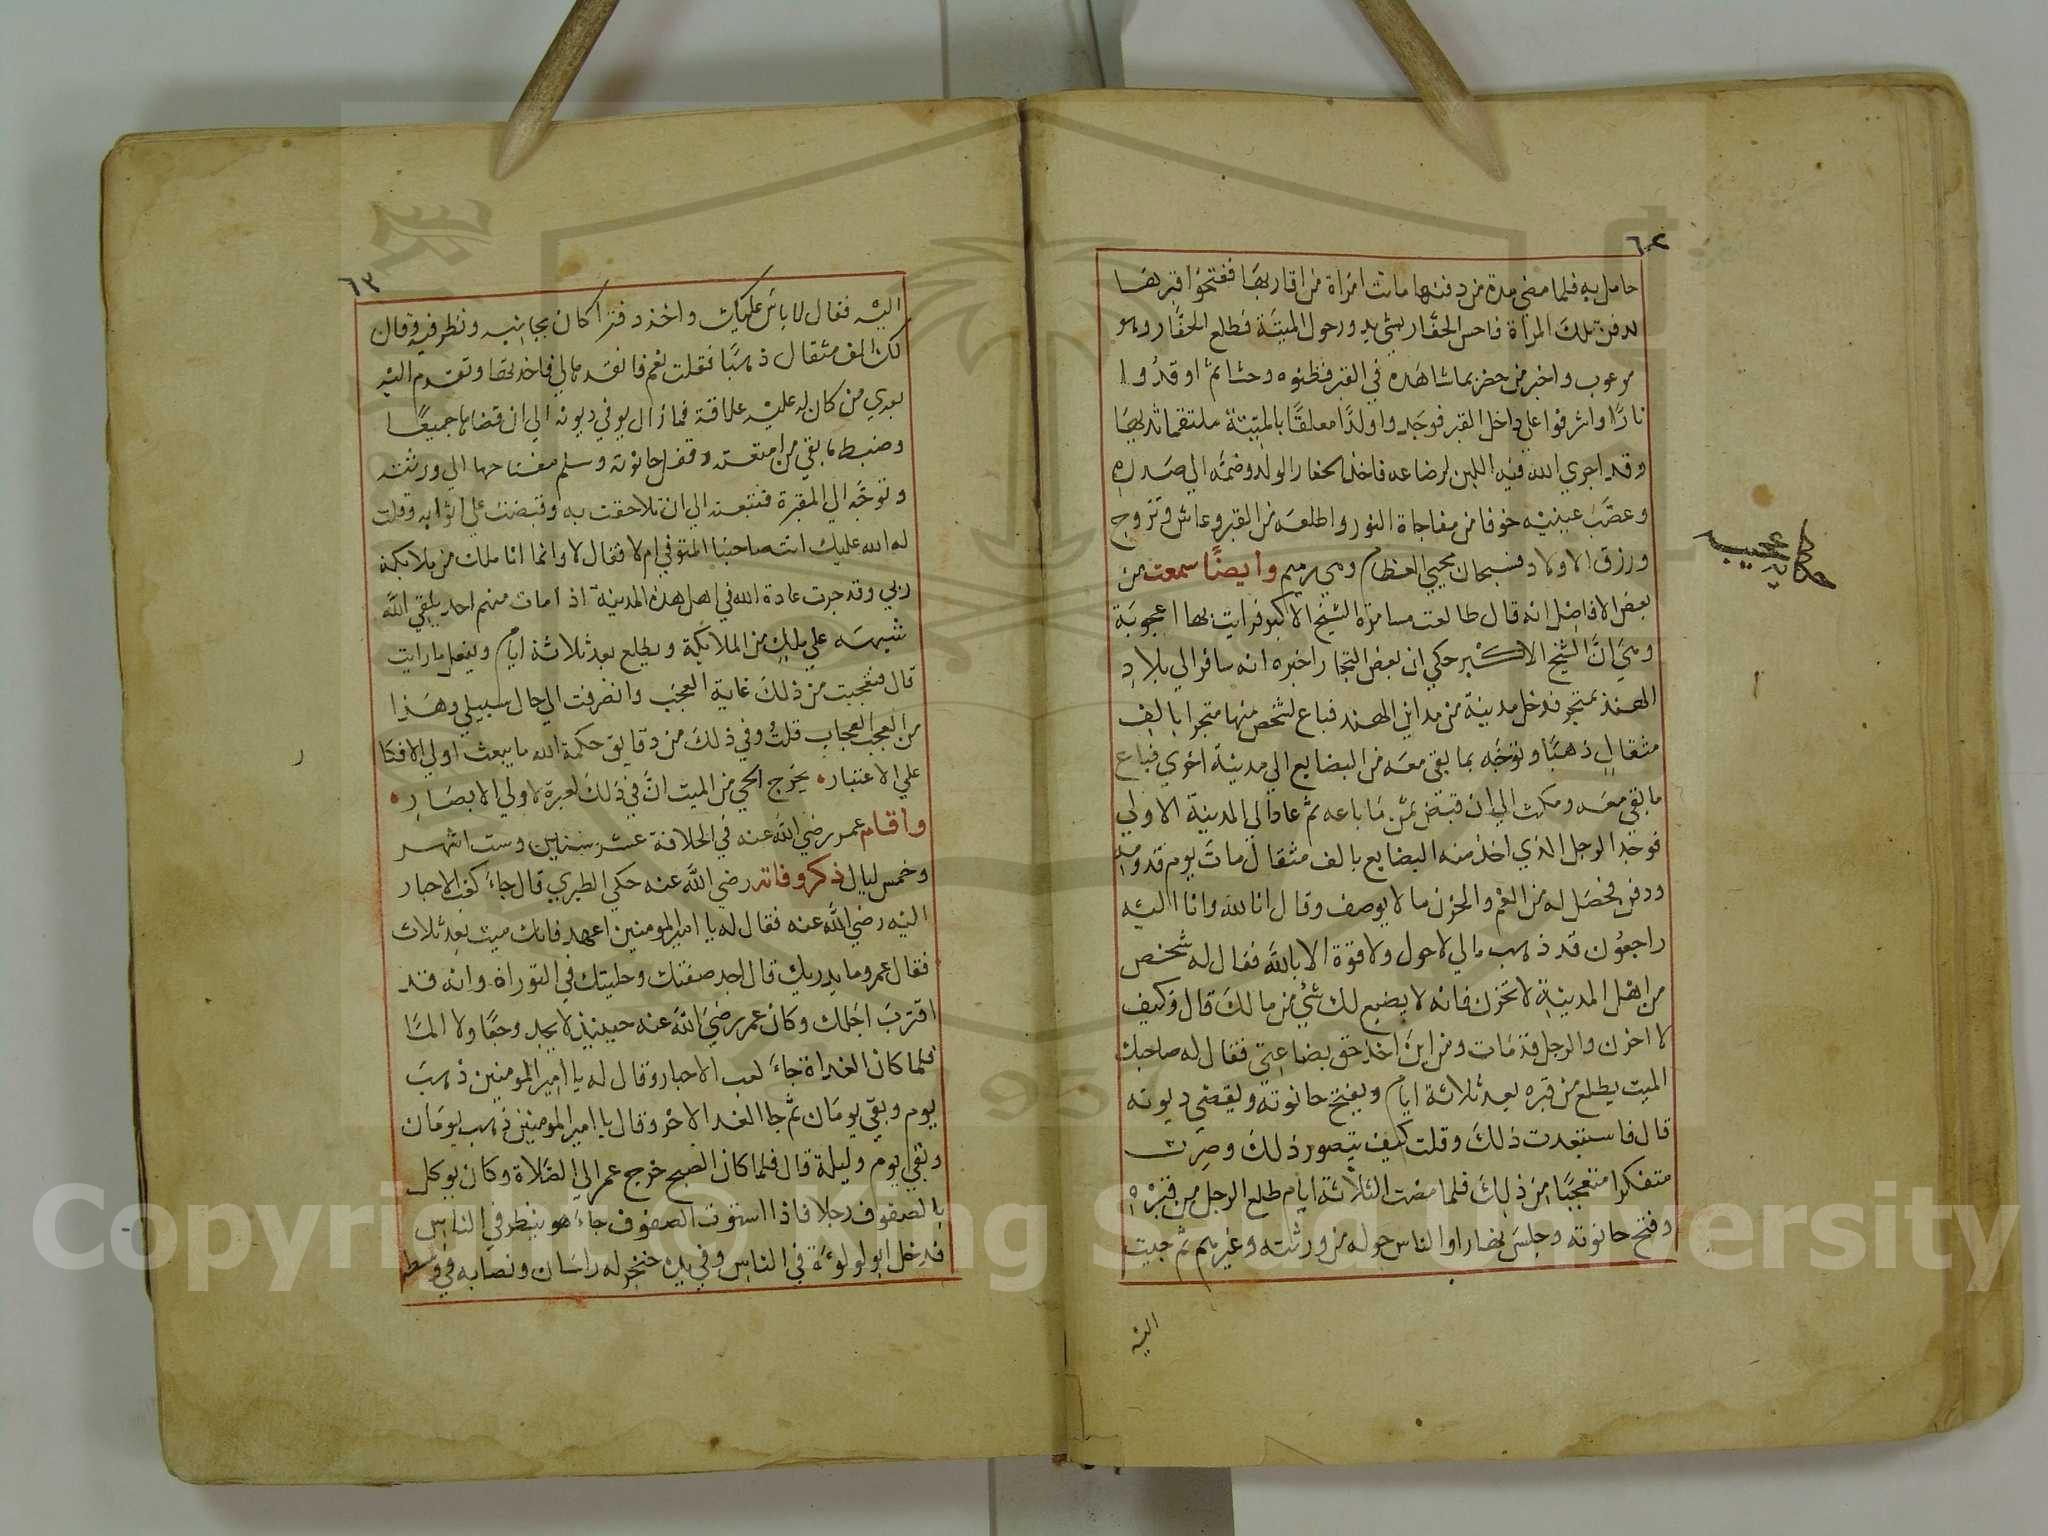 ٦٢
حامل به فلما مضى مدة من دفنها ماتت امراة من اقاربها ففتحوا قبرها
لدفن تلك المراة فاحس الحفار بشي يدور حول الميتة فطلع الحفار وهو
مرعوب واخبر من حضر بما شاهده في القبر فظنوه وحشا ثم اوقدوا
نارا واشرفوا على داخل القبر فوجدوا ولدا معلقا بالميتة ملتقما ثديها
وقد اجري الله فيه اللبن لرضاعه فاخذ الحفار الولد وضمه الي صدره
وعصب عينيه خوفا من مفاجاة النور واطلعه من القبر وعاش وتزوج
ورزق الاولاد فسبحان محيي العظام وهي رميم وايضا سمعت من
حكاية عجيب
بعض الافاضل انه قال طالعت مسامرة الشيخ الاكبر فرايت بها اعجوبة
وهي ان الشيخ الاكبر حكي ان بعض التجار اخبره انه سافر الي بلاد
الهند بمتجر فدخل مدينة من مداين الهند فباع لشخص منها متجرا بالف
مثقال ذهبا وتوجه بما بقي معه من البضايع الي مدينة اخري فباع
ما بقي معه ومكث الي ان قبض ثمن ما باعه ثم عاد الي المدينة الاولي
فوجد الرجل الذي اخذ منه البضايع بالف مثقال مات يوم قدومه
ودفن فحصل له من الغم والحزن ما لا يوصف وقال انا لله وانا اليه
راجعون قد ذهب مالي لاحول ولا قوة الا بالله فقال له شخص
من اهل المدينة لا تحزن فانه لا يضيع لك شي من مالك قال وكيف
لا احزن والرجل قد مات ومن اين اخذ حق بضاعتي فقال له صاحبك
الميت يطلع من قبره بعد ثلاثة ايام ويفتح حانوته ويقضي ديونه
قال فاستبعدت ذلك وقلت كيف يتصور ذلك وصرت
متفكرا متعجبا من ذلك فلما مضت الثلاثة ايام طلع الرجل من قبره
وفتح حانوته وجلس نهارا والناس حوله من ورثته وغيرهم ثم جيت
اليه
٦٣
اليه فقال لا باس عليك واخذ دفترا كان بجانبه ونظر فيه وقال
لك الف مثقال ذهبا فقلت نعم فانقد مالي فاخذتها وتقدم اليه
بعدي من كان له عليه علاقة فما زال يوفي ديونه الي ان قضاها جميعا
وضبط ما بقي من امتعته وقفل حانوته وسلم مفتاحها الي ورثته
وتوجه الي المقبرة فتبعته الي ان تلاحقت به وقبضت علي اثوابه وقلت
له الله عليك انت صاحبنا المتوفي ام لا فقال لا وانما انا ملك من ملايكة
ربي وقد جرت عادة الله في اهل هذه المدينة اذا مات منهم احد يلقي الله
شبهه علي ملك من الملايكة ويطلع بعد ثلاثة ايام ويفعل ما رايت
قال فتعجبت من ذلك غاية العجب وانصرفت الي حال سبيلي وهذا
من العجب العجاب قلت وفي ذلك من دقايق حكمة الله ما يبعث اولي الافكا
علي الاعتبار يخرج الحي من الميت ان في ذلك لعبرة لاولي الابصار
واقام عمر رضي الله عنه في الخلافة عشر سنين وست اشهر
وخمس ليال ذكر وفاته رضي الله عنه حكي الطبري قال جاء كعب الاحبار
اليه رضي الله عنه فقال له يا امير المومنين اعهد فانك ميت بعد ثلاث
فقال عمر وما يدريك قال اجد صفتك وحليتك في التوراة وانه قد
اقترب اجلك وكان عمر رضي الله عنه حينيذ لا يجد وجعا ولا الما
فلما كان الغداة جاء كعب الاحبار وقال له يا امير المومنين ذهب
يوم وبقي يومان ثم جا الغد الاخر وقال يا امير المومنين ذهب يومان
وبقي يوم وليلة قال فلما كان الصبح خرج عمر الي الصلاة وكان يوكل
بالصفوف رجلا فاذا استوت الصفوف جاء هو ينظر في الناس
فدخل ابو لولوة في الناس وفي يده خنجر له راسان ونصابه في وسطه
Copyright © King Saud University